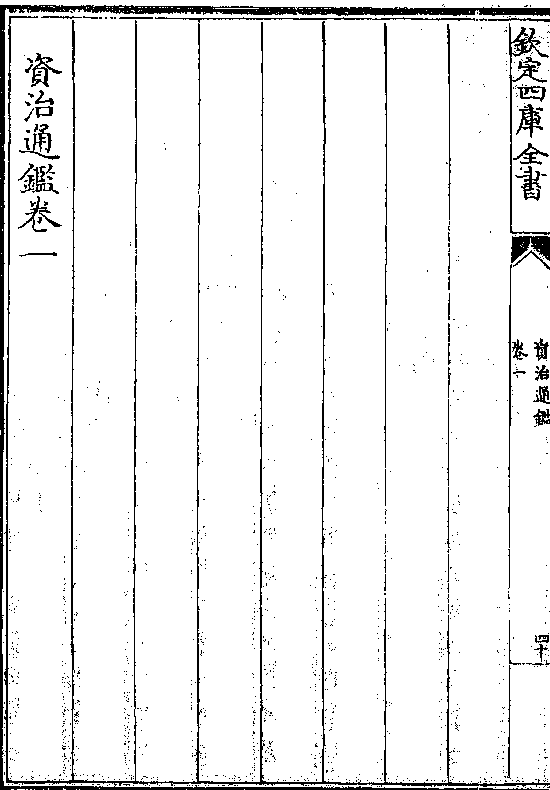 欽定四庫全書
資治通鑑
卷一
四十
資治通鑑卷一